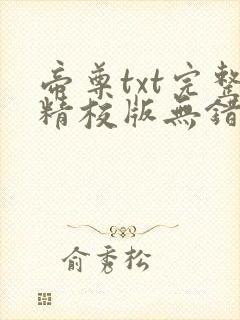 帝尊txt完整
精校版無錯
俞秀松